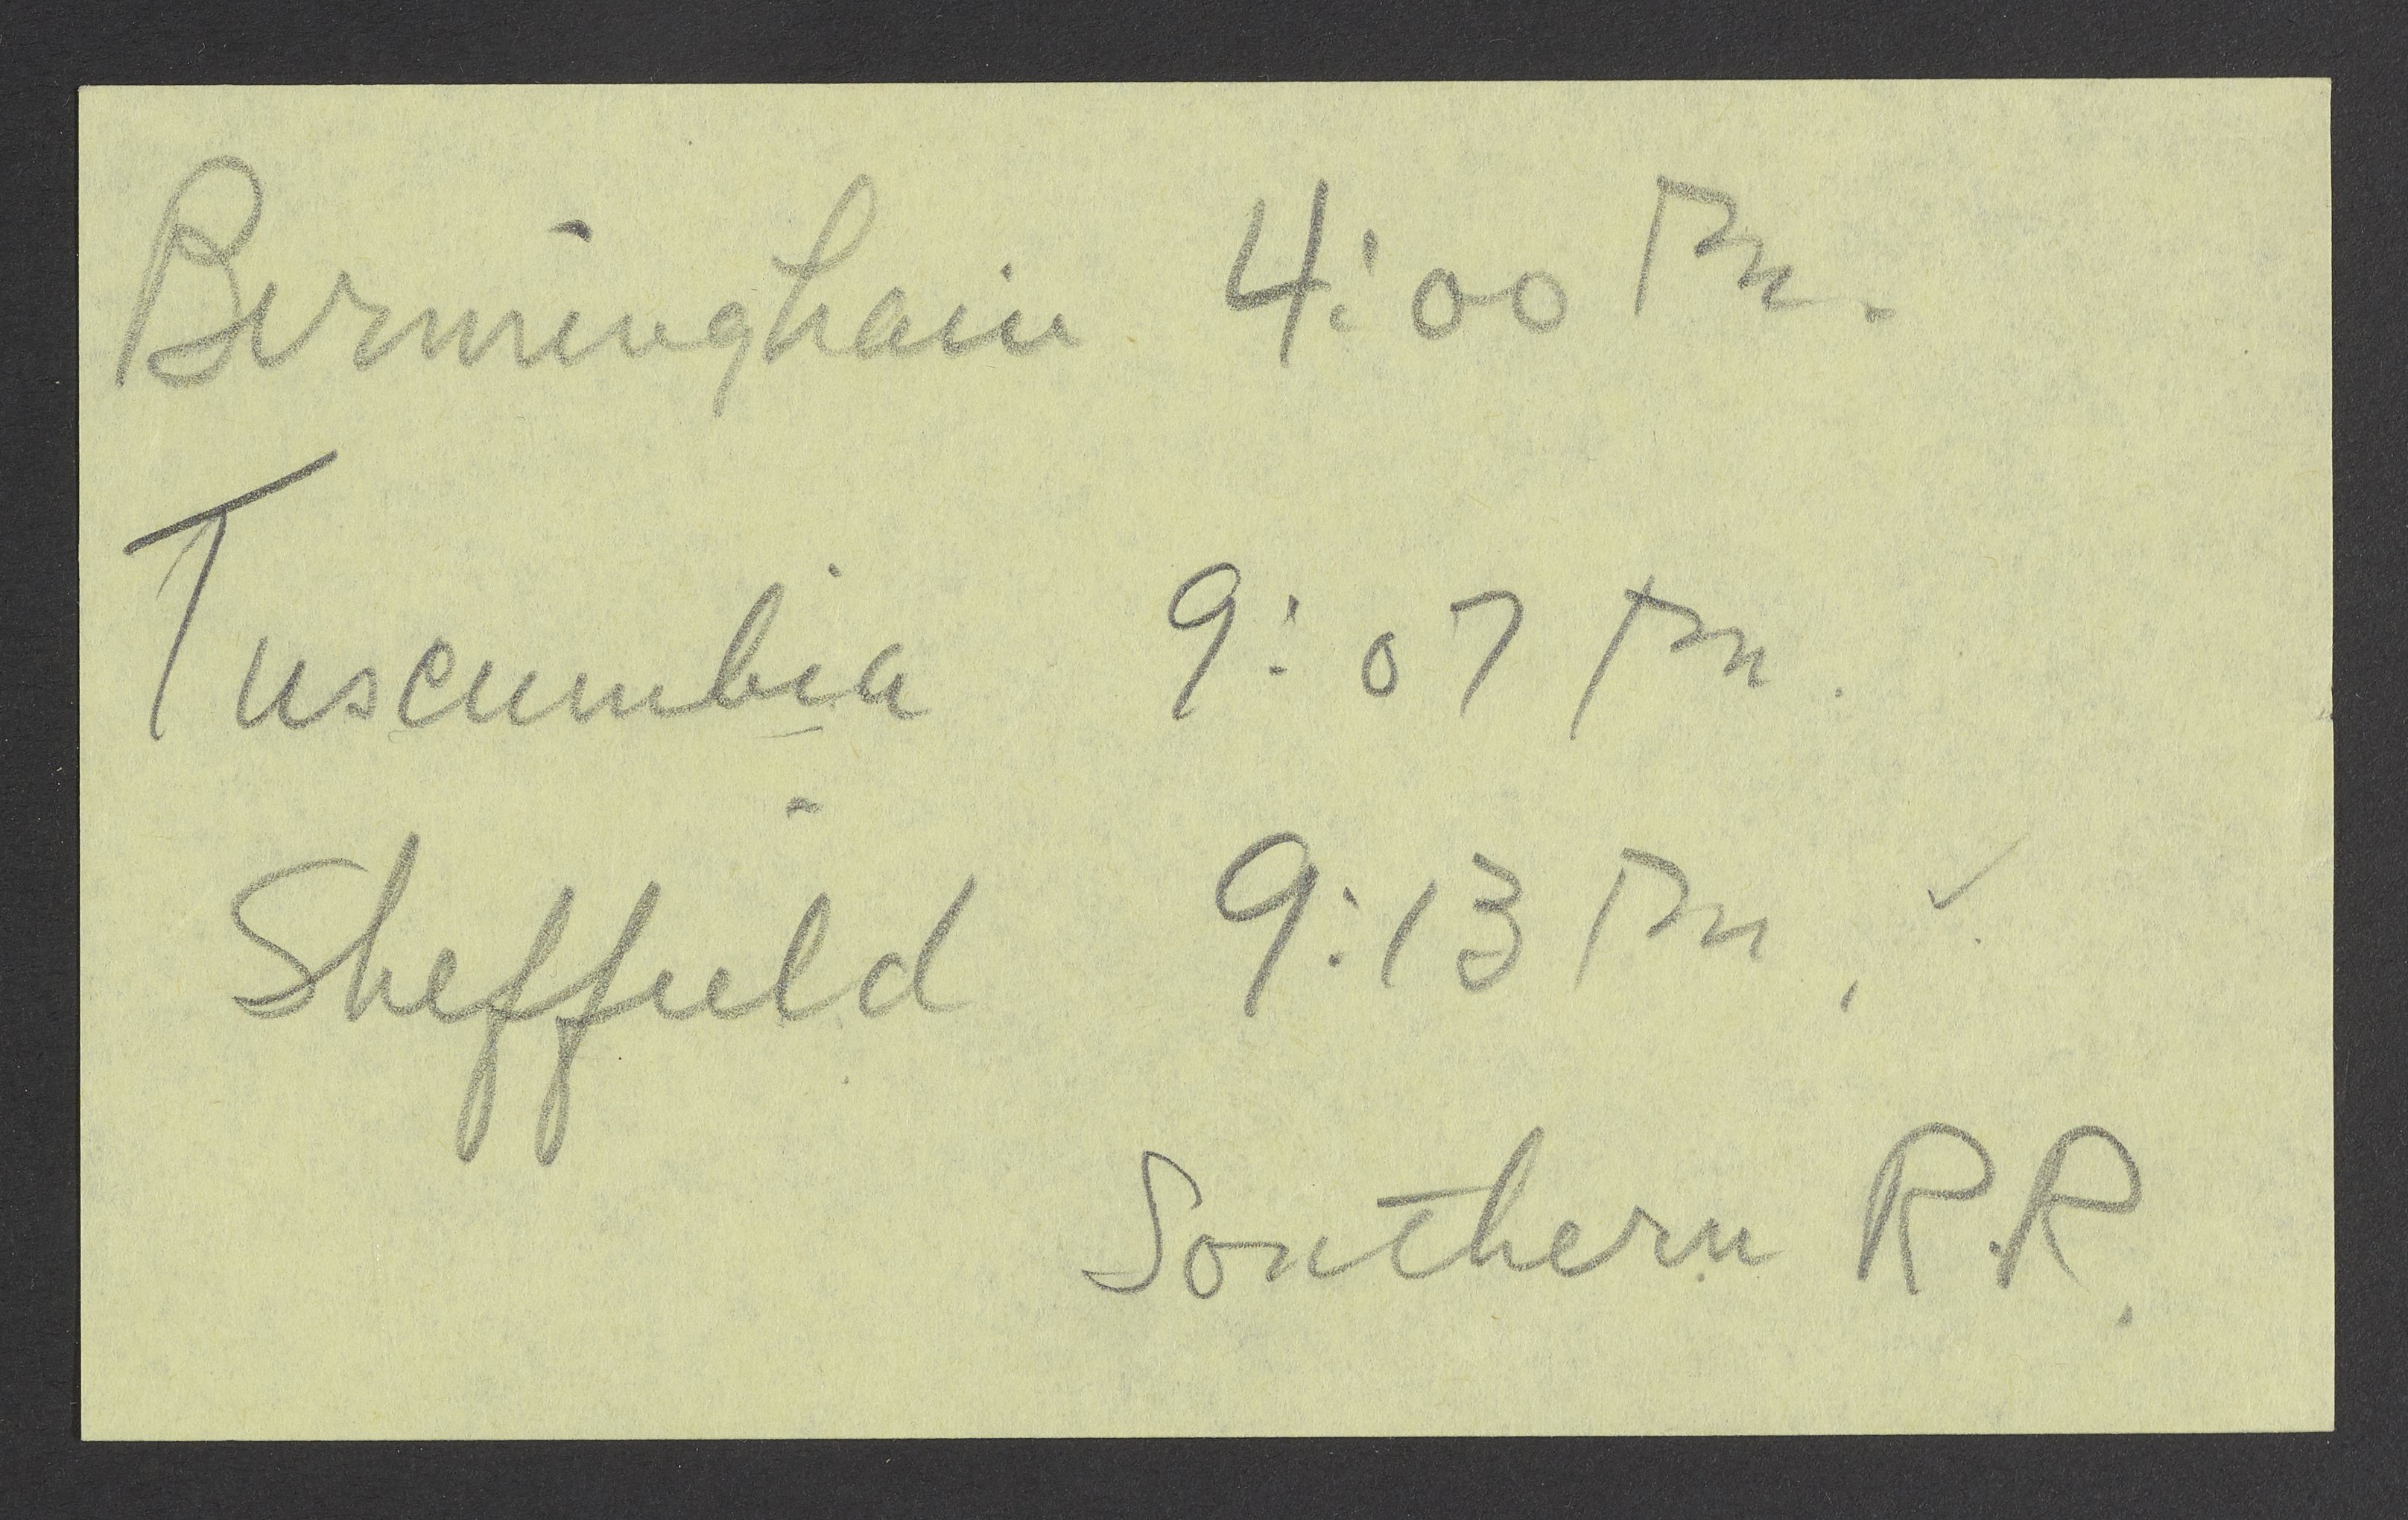 Birmingham 4:00 Pm.
Tuscumbia 9:07 Pm.
Sheffield 9:13 Pm. ✓
Southern R.R.